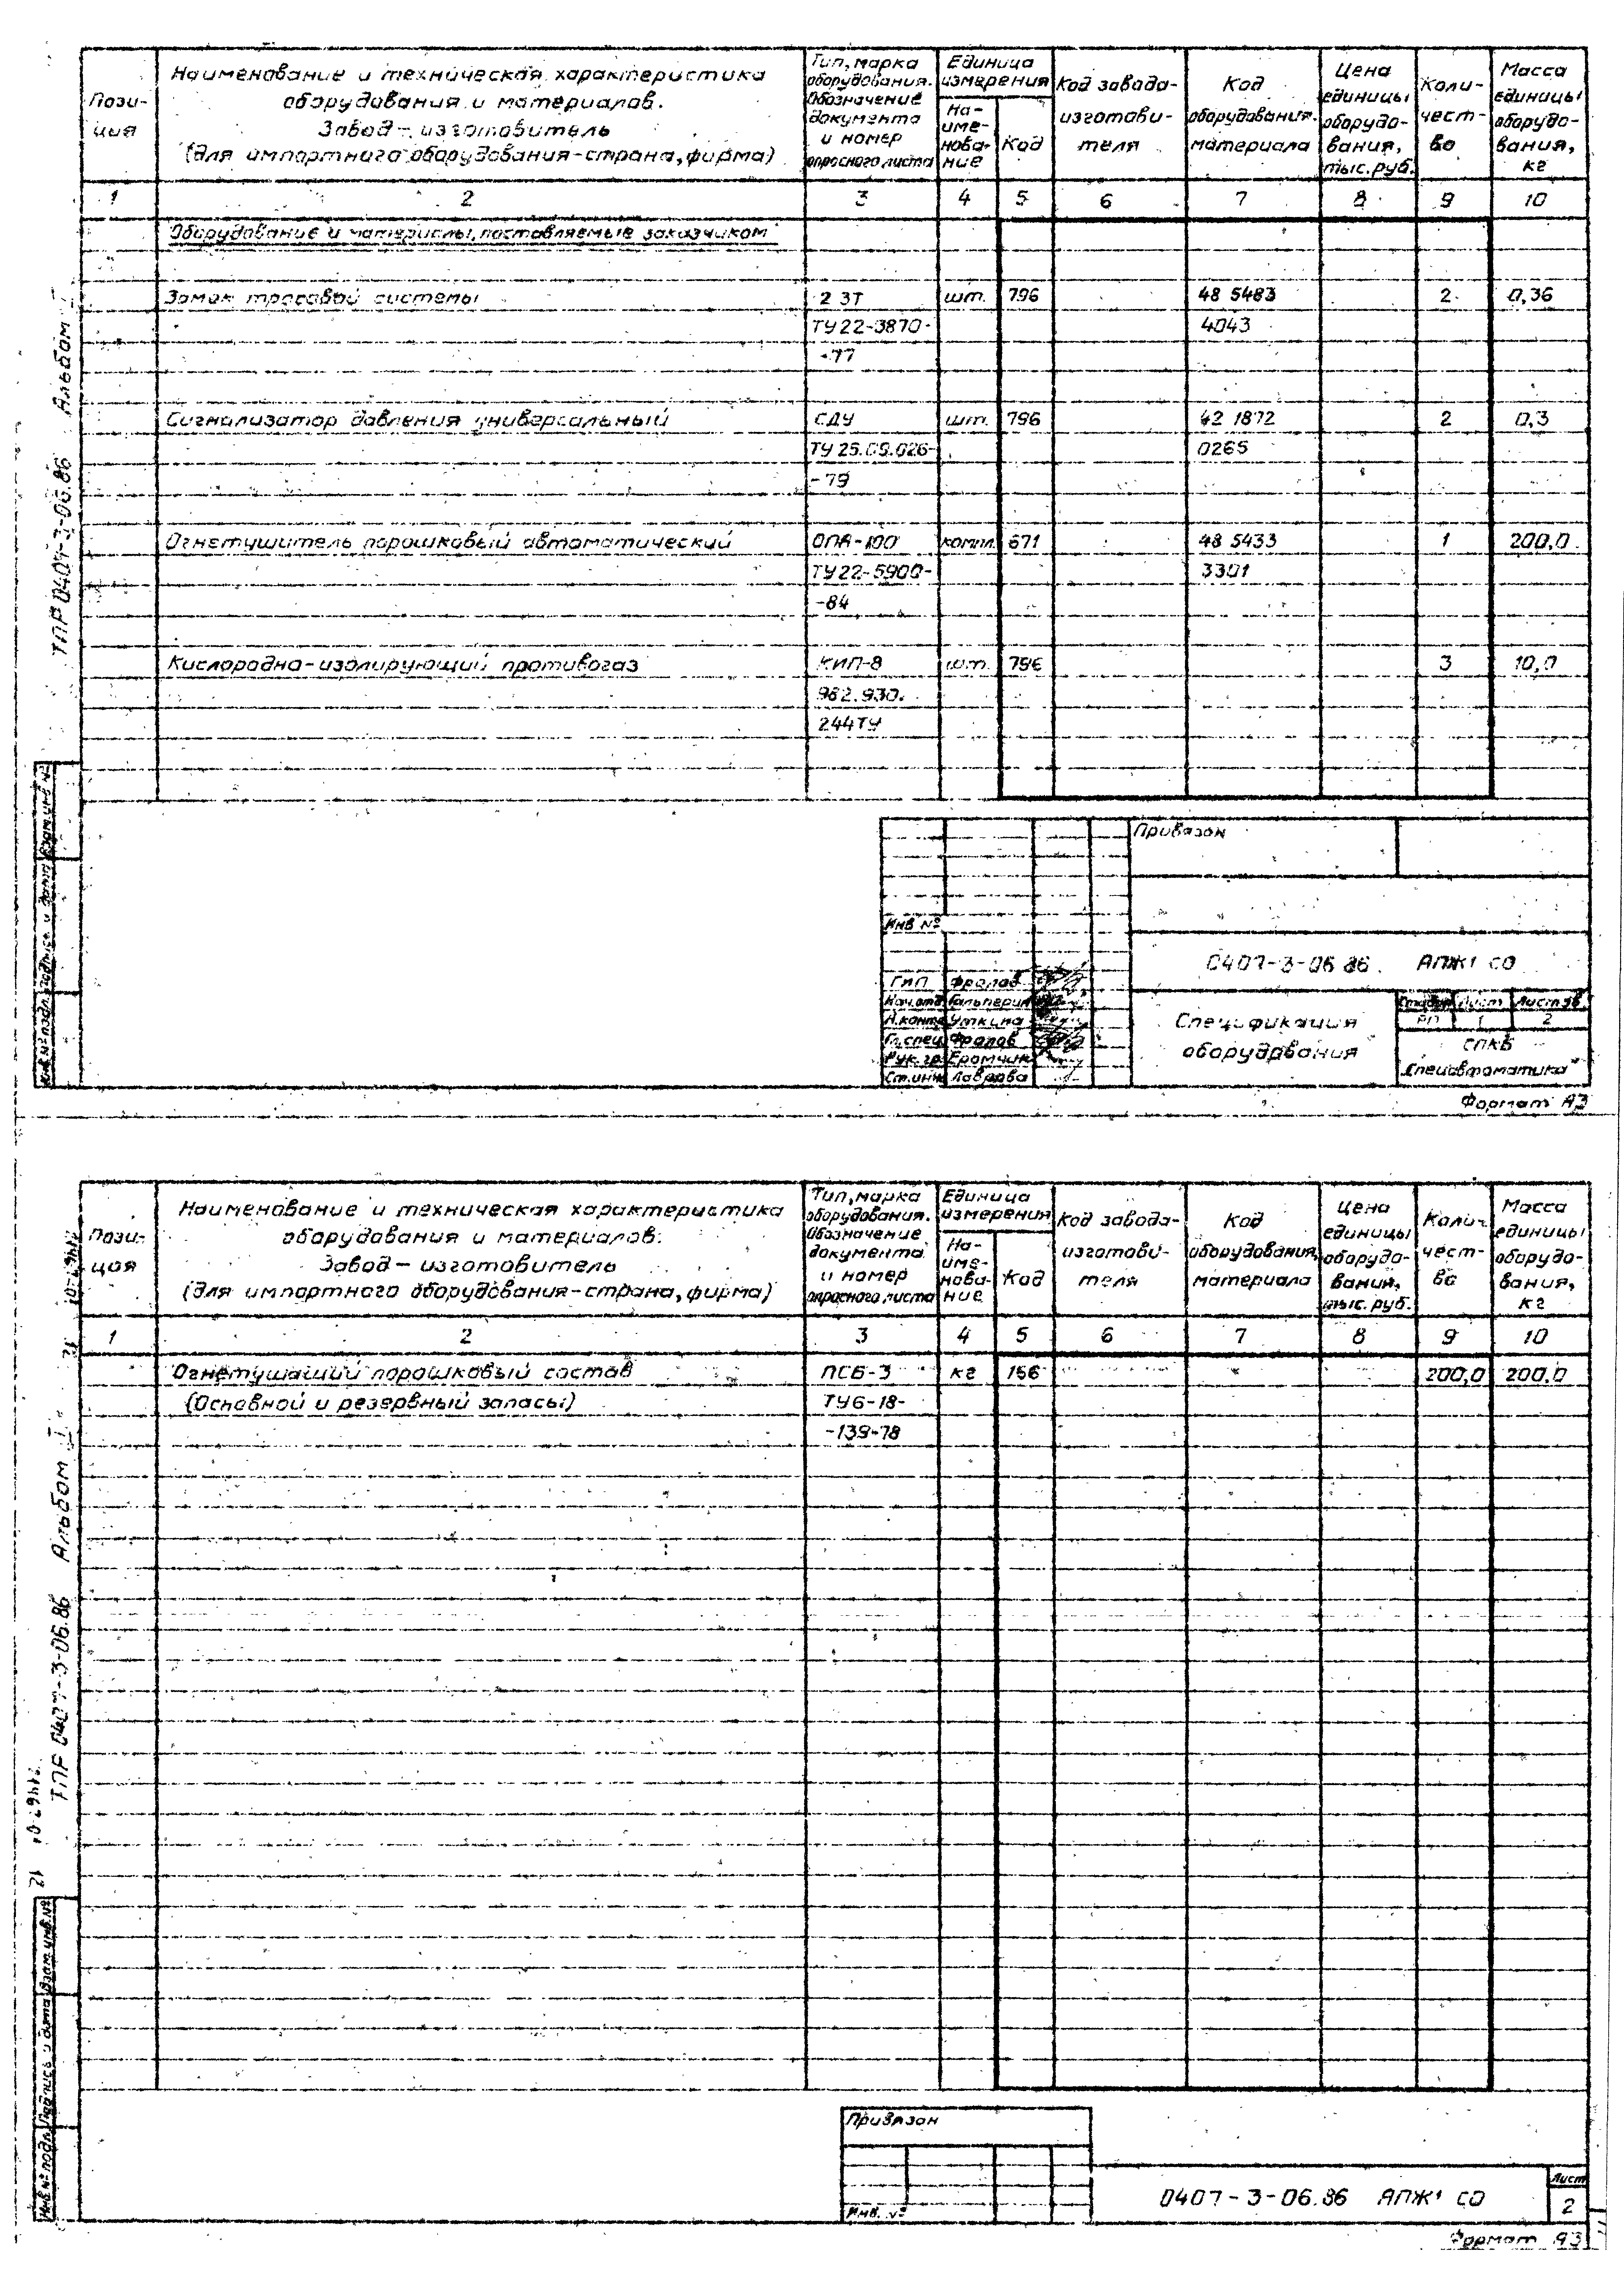 Пози-
ция
Наименование и техническая характеристика
оборудования и материалов.
Завод-изготовитель
(для импортного оборудования-страна, фирма)
Тип, марка
оборудования.
Обозначение
документа
и номер
опросного листа
Единица
измерения
На-
име-
нова-
ние
Код
Код завода-
изготови-
теля
Код
оборудования,
материала
Цена
единицы
оборудо-
вания,
тыс. руб.
Коли-
чест-
во
Масса
единицы
оборудо-
вания,
кг
1 2 3 4 5 6 7 8 9 10
Оборудование и материалы, поставляемые заказчиком
Замок тросовой системы 2 ЗТ шт. 796 48 5483 2 0,36
ТУ 22-3870- 4043
-77
Сигнализатор давления универсальный СДУ шт. 796 42 1872 2 0,3
ТУ 25.09.026- 0265
-79
Огнетушитель порошковый автоматический ОПА-100 компл. 671 48 5433 1 200,0
ТУ 22-5900- 3301
-84
Кислородно-изолирующий противогаз КИП-8 шт. 796 3 10,0
962.930.
244ТУ
ТПР 0407-3-06.86 Альбом I
Инв № подл. Подпись и дата Взам инв №
Привязан
Инв №
0407-3-06.86 АПЖ1 СО
ГИП Фролов
Нач.отд. Гальперин
Н.контр Уткина
Гл.спец Фролов
Рук.гр. Еромчик
Ст.инж Лаврова
Спецификация
оборудования
Стадия Лист Листов
РП 1 2
СПКБ
"Спецавтоматика"
Формат А3
Пози-
ция
Наименование и техническая характеристика
оборудования и материалов.
Завод-изготовитель
(для импортного оборудования-страна, фирма)
Тип, марка
оборудования.
Обозначение
документа
и номер
опросного листа
Единица
измерения
На-
име-
нова-
ние
Код
Код завода-
изготови-
теля
Код
оборудования,
материала
Цена
единицы
оборудо-
вания,
тыс. руб.
Коли-
чест-
во
Масса
единицы
оборудо-
вания,
кг
1 2 3 4 5 6 7 8 9 10
Огнетушащий порошковый состав ПСБ-3 кг 166 200,0 200,0
(Основной и резервный запасы) ТУ6-18-
-139-78
ТПР 0407-3-06.86 Альбом I
21467-01 12
Инв № подл. Подпись и дата Взам инв №
Привязан
Инв. №
0407-3-06.86 АПЖ1 СО
Лист
2
Формат А3